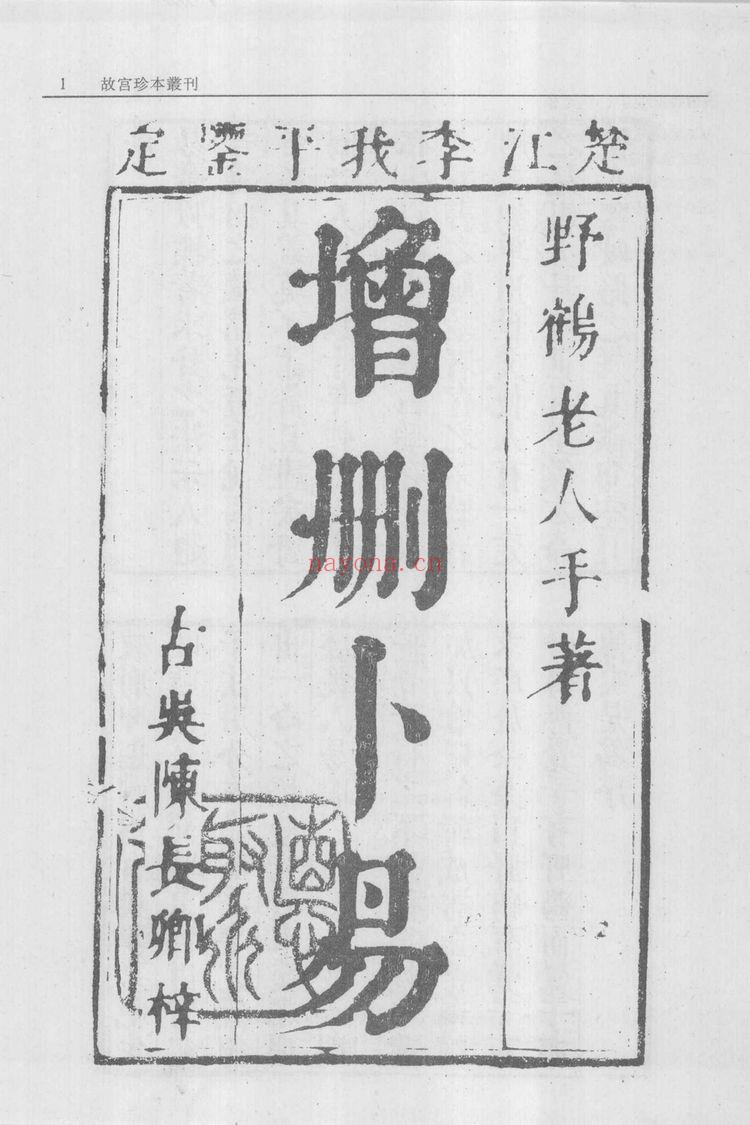 1 故宫珍本叢刊
楚江李我平鑒定
野鶴老人手著
增删卜易
古吳陳長卿梓
nayona.cn